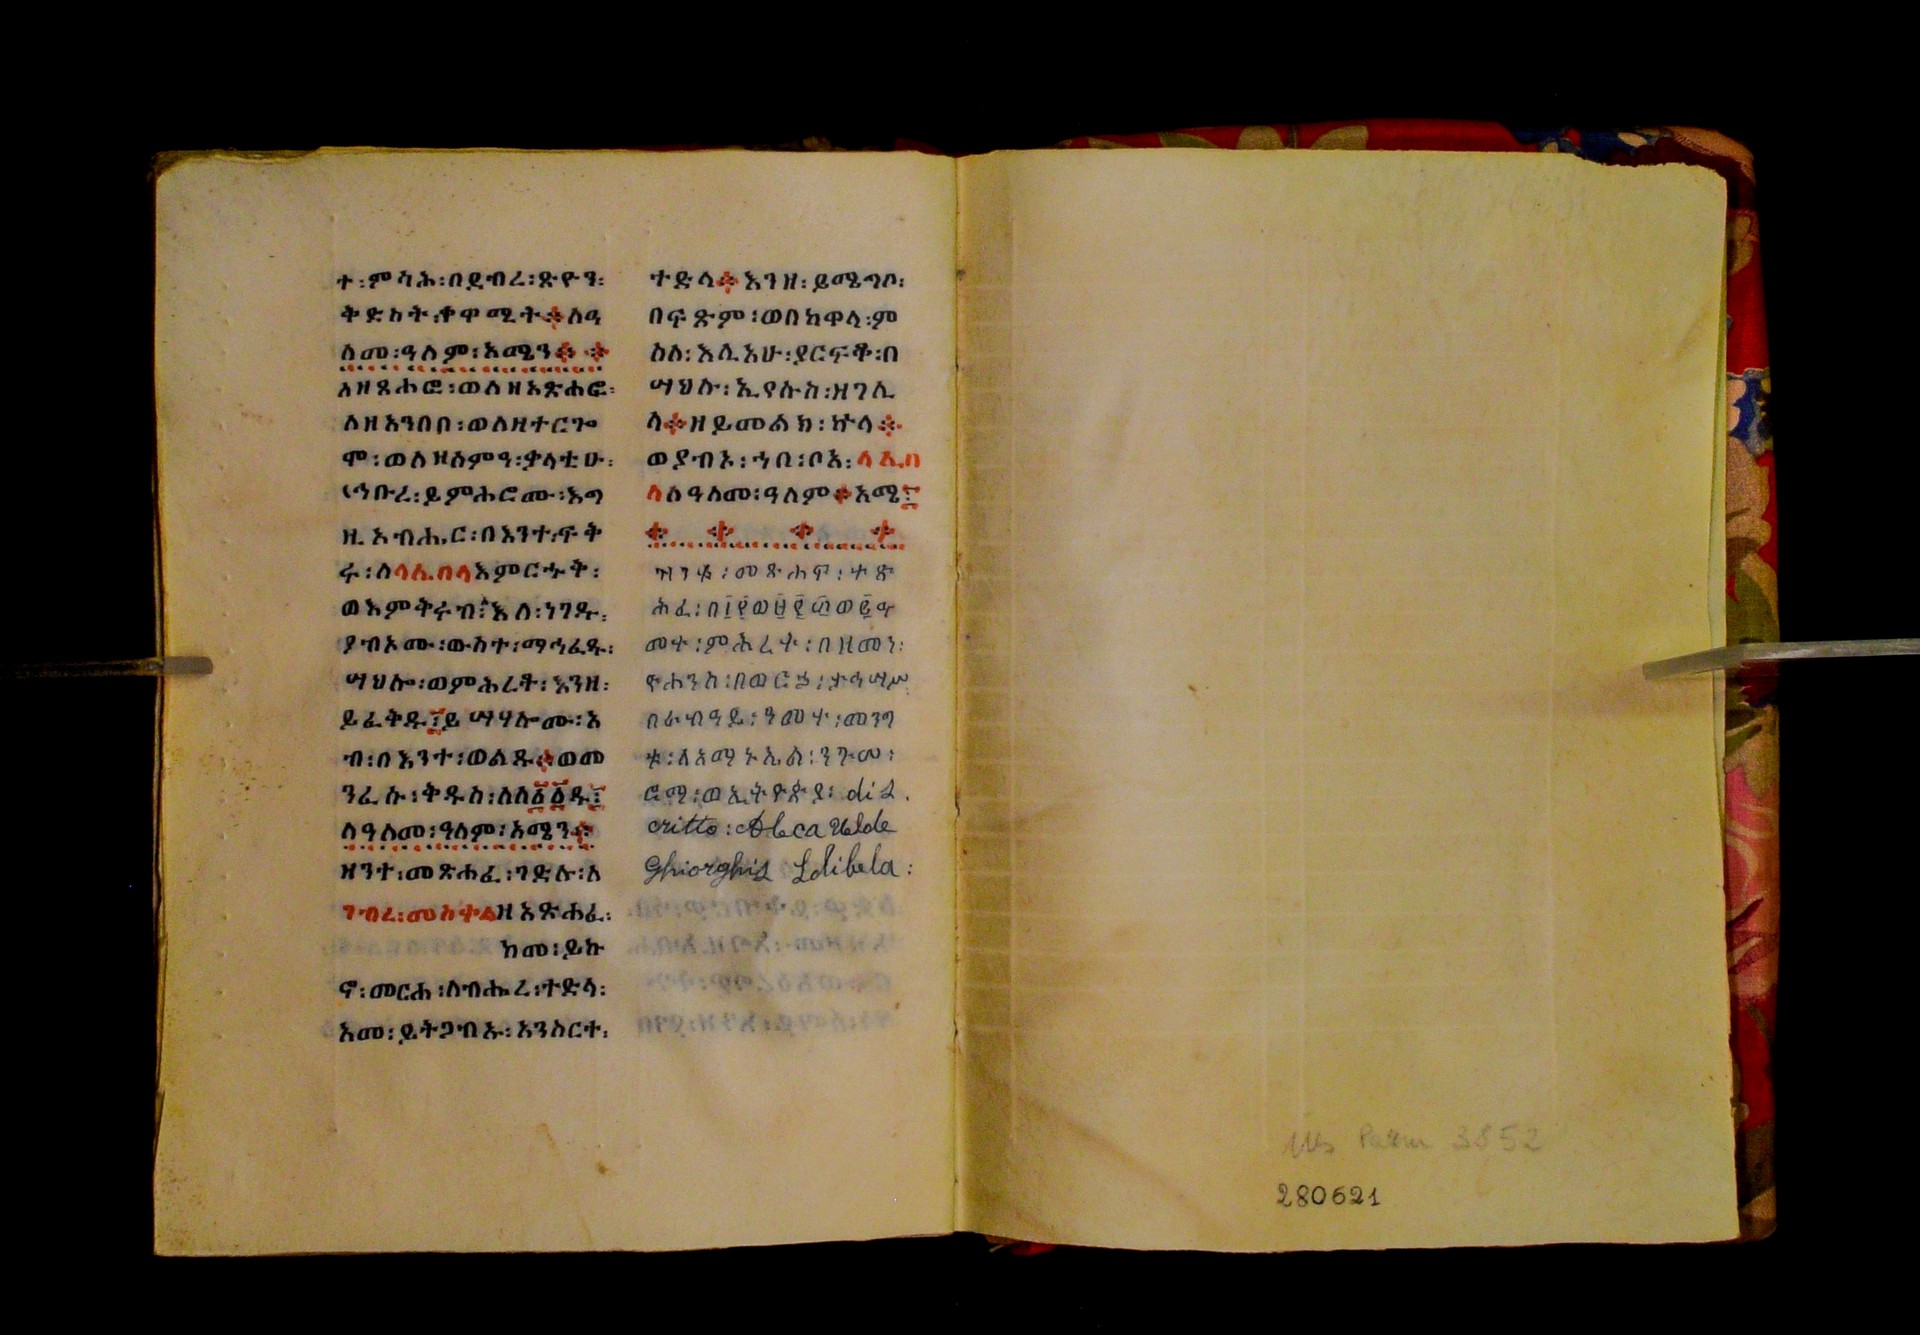 ተ፡ምሳሕ፡በደብረ፡ጽዮን፡
ቅድስት፡ቀዋሚት፨ለዓ
ለመ፡ዓለም፡አሜን፨ ፨
ለዘጸሐፎ፡ወለዘአጽሐፎ፡
ለዘአንበበ፡ወለዘተርጐ
ሞ፡ወለዘሰምዓ፡ቃላቲሁ፡
ኅቡረ፡ይምሕሮሙ፡እግ
ዚአብሔር፡በእንተ፡ፍቅ
ሩ፡ለላሊበላእምርሑቅ፡
ወእምቅሩብ፡እለ፡ነገዱ፡
ያብኦሙ፡ውስተ፡ማኅፈዱ፡
ሣህሎ፡ወምሕረት፡እንዘ፡
ይፈቅዱ፤ይሣሃሎሙ፡አ
ብ፡በእንተ፡ወልዱ፨ወመ
ንፈሱ፡ቅዱስ፡ለለ፩፩ዱ፤
ለዓለመ፡ዓለም፡አሜን፨
ዝንተ፡መጽሐፈ፡ገድሉ፡ለ
ገብረ፡መስቀልዘአጽሐፈ፡
ከመ፡ይኩ
ኖ፡መርሐ፡ለብሔረ፡ተድላ፡
አመ፡ይትጋብኡ፡አንስርተ፡
ተድላ፨እንዘ፡ይሜግቦ፡
በፍጽም፡ወበከዋላ፡ም
ስለ፡እሊአሁ፡ያርፍቅ፡በ
ሣህሉ፡ኢየሱስ፡ዘገሊ
ላ፨ዘይመልክ፡ኵላ፨
ወያብኦ፡ኀበ፡ቦአ፡ላሊበ
ላለዓለመ፡ዓለም፨አሜ፤
፨ ፨ ፨ ፨
ዝንቱ፡መጽሐፍ፡ተጽ
ሕፈ፡በ፲፻ወ፱፻፳ወ፪ዓ
መተ፡ምሕረት፡በዘመነ፡
ዮሐንስ፡በወርኃ፡ታኅሣሥ
በራብዓይ፡ዓመተ፡መንግ
ቱ፡ለአማኑኤል፡ንጉሠ፡
ሮማ፡ወኢትዮጵያ፡ dis.
critto : Aleca Uelde
Ghiorghis Ldibela :
Ms Parm 3852
280621